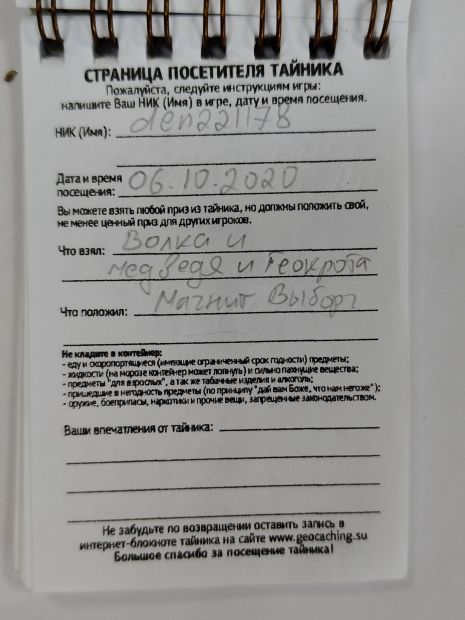 СТРАНИЦА ПОСЕТИТЕЛЯ ТАЙНИКА
Пожалуйста, следуйте инструкциям игры:
напишите Ваш НИК (Имя) в игре, дату и время посещения.
НИК (Имя): den221178
Дата и время
посещения: 06.10.2020
Вы можете взять любой приз из тайника, но должны положить свой,
не менее ценный приз для других игроков.
Что взял: Волка и
медведя и Геокрота
Что положил: Магнит Выборг
Не кладите в контейнер:
- еду и скоропортящиеся (имеющие ограниченный срок годности) предметы;
- жидкости (на морозе контейнер может лопнуть) и сильно пахнущие вещества;
- предметы "для взрослых", а так же табачные изделия и алкоголь;
- пришедшие в негодность предметы (по принципу "дай вам Боже, что нам негоже");
- оружие, боеприпасы, наркотики и прочие вещи, запрещенные законодательством.
Ваши впечатления от тайника:
Не забудьте по возвращении оставить запись в
интернет-блокноте тайника на сайте www.geocaching.su
Большое спасибо за посещение тайника!